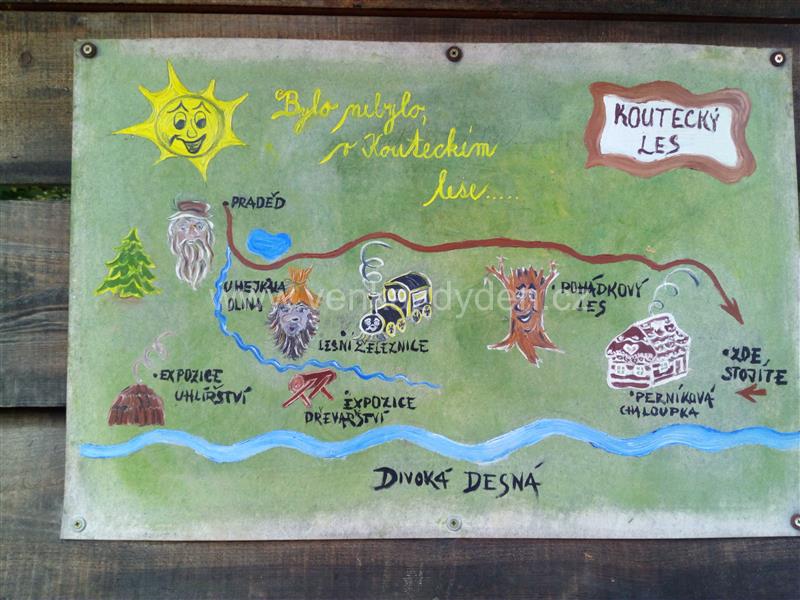 Bylo nebylo,
v Kouteckém
lese.....
KOUTECKÝ
LES
PRADĚD
U HEJKALA
OLINA
LESNÍ ŽELEZNICE
POHÁDKOVÝ
LES
ZDE
STOJÍTE
EXPOZICE
UHLÍŘSTVÍ
EXPOZICE
DŘEVAŘSTVÍ
PERNÍKOVÁ
CHALOUPKA
DIVOKÁ DESNÁ